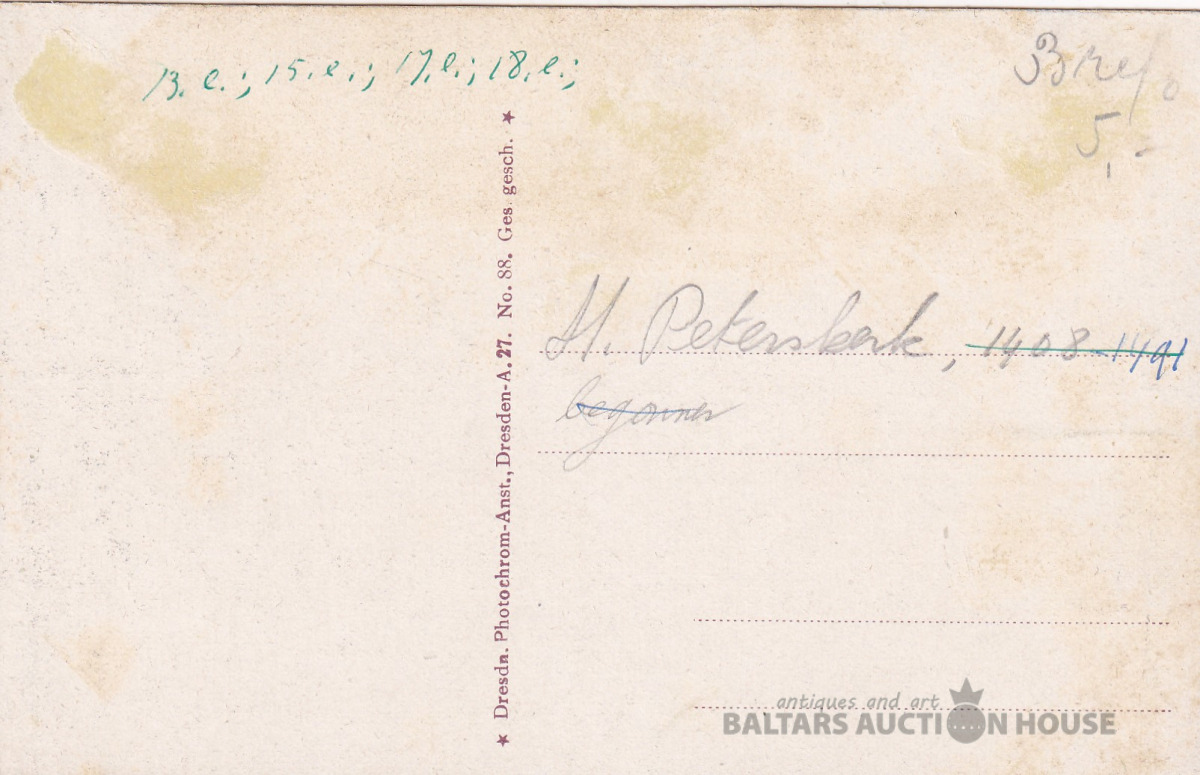 13. e.; 15. e.; 17. e.; 18. e.;
5,-
★ Dresdn. Photochrom-Anst., Dresden-A. 27. No. 88. Ges. gesch. ★
1408-1491
begonnen
antiques and art
BALTARS AUCTION HOUSE